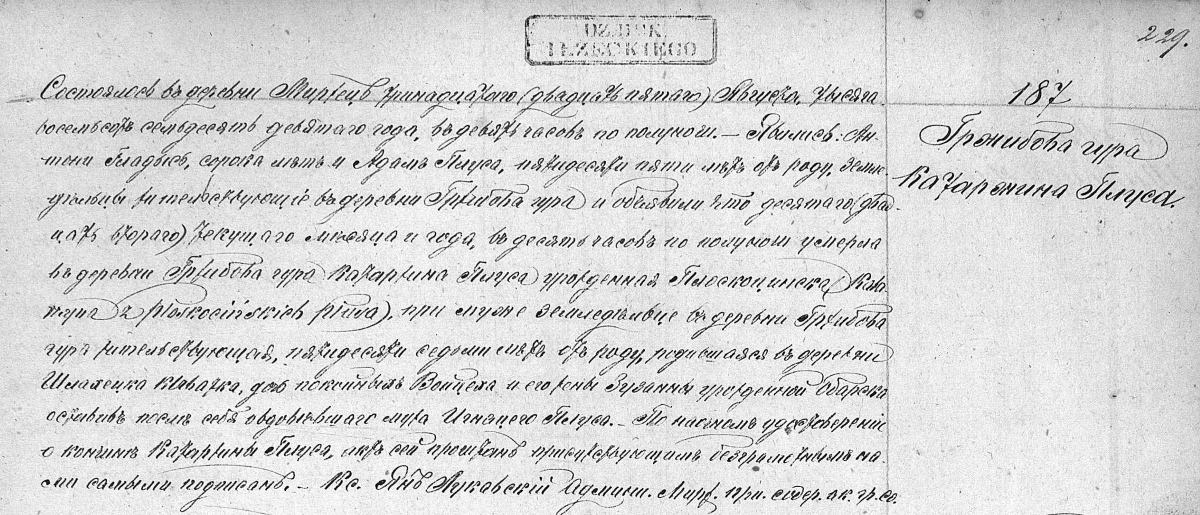 DZ.DUK.
IŁŻECKIEGO
229.
187
Гржибова гура
Катаржина Плуса.
Состоялось въ деревни Миржец тринадцатого (двадцать пятаго) Августа, тысяча
восемьсотъ семьдесятъ девятаго года, въ девять часовъ по полуноши. — Явились: Ан-
тони Гладысь, сорока лѣтъ и Адамъ Плуса, пятидесяти пяти лѣтъ отъ роду, земле-
дѣльцы жительствующіе въ деревни Гржибова гура и объявили что десятаго (двад-
цать втораго) текущаго мѣсяца и года, въ десять часовъ по полуноши умерла
въ деревни Гржибова гура Катаржина Плуса урожденная
z Płoskocińskich Plusa), при мужѣ земледѣльце въ деревни Гржибова
гура жительствующая, пятидесяти седьми лѣтъ отъ роду, родившаяся въ деревни
Шляхецка дочь покойныхъ Войцеха и его жены Зузанны урожденной
оставивъ послѣ себя овдовѣвшаго мужа Игнацего Плуса. — По настомъ удостовереніи
о кончинѣ Катаржины Плуса, актъ сей прочитанъ присутствующимъ безграмотнымъ на-
ми самыми подписанъ. — Кс. Янъ Лукавскій Админ. Мирж. при. содер. ак. гр. со.